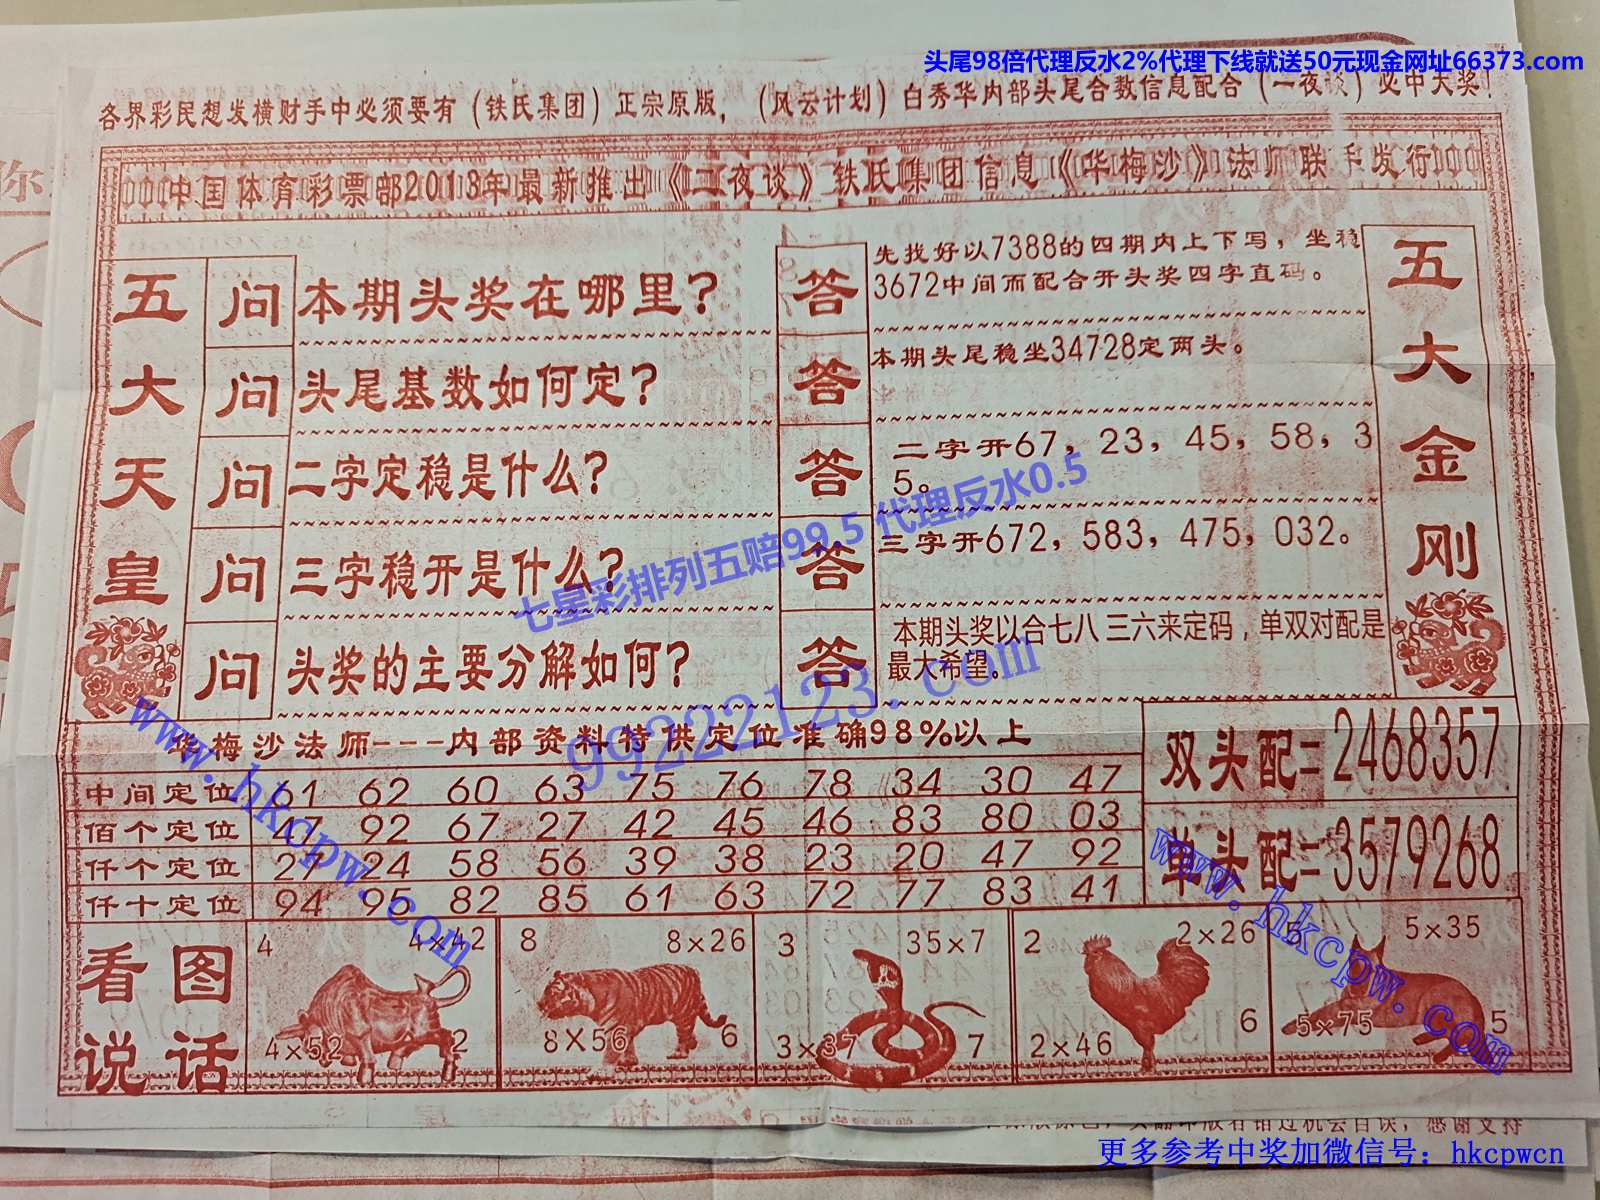 头尾98倍代理反水2%代理下线就送50元现金网址66373.com
各界彩民想发横财手中必须要有（铁氏集团）正宗原版，（风云计划）白秀华内部头尾合数信息配合（一夜谈）必中大奖！
中国体育彩票部2013年最新推出《一夜谈》铁氏集团信息《华梅沙》法师联手发行
五大天皇
问 本期头奖在哪里？
答 先找好以7388的四期内上下写，坐稳
3672中间而配合开头奖四字直码。
问 头尾基数如何定？
答 本期头尾稳坐34728定两头。
问 二字定稳是什么？
答 二字开67，23，45，58，3
5。
问 三字稳开是什么？
答 三字开672，583，475，032。
问 头奖的主要分解如何？
答 本期头奖以合七八三六来定码，单双对配是
最大希望。
五大金刚
七星彩排列五赔99.5 代理反水0.5
99222123.com
www.hkcpw.com
华梅沙法师---内部资料特供定位准确98%以上
中间定位 61 62 60 63 75 76 78 34 30 47
佰个定位 47 92 67 27 42 45 46 83 80 03
仟个定位 27 24 58 56 39 38 23 20 47 92
仟十定位 94 95 82 85 61 63 72 77 83 41
双头配=2468357
单头配=3579268
www.hkcpw.com
看图
说话
4 4×42
4×52 2
8 8×26
8×56 6
3 35×7
3×37 7
2 2×26
2×46 6
5 5×35
5×75 5
感谢支持
更多参考中奖加微信号：hkcpwcn